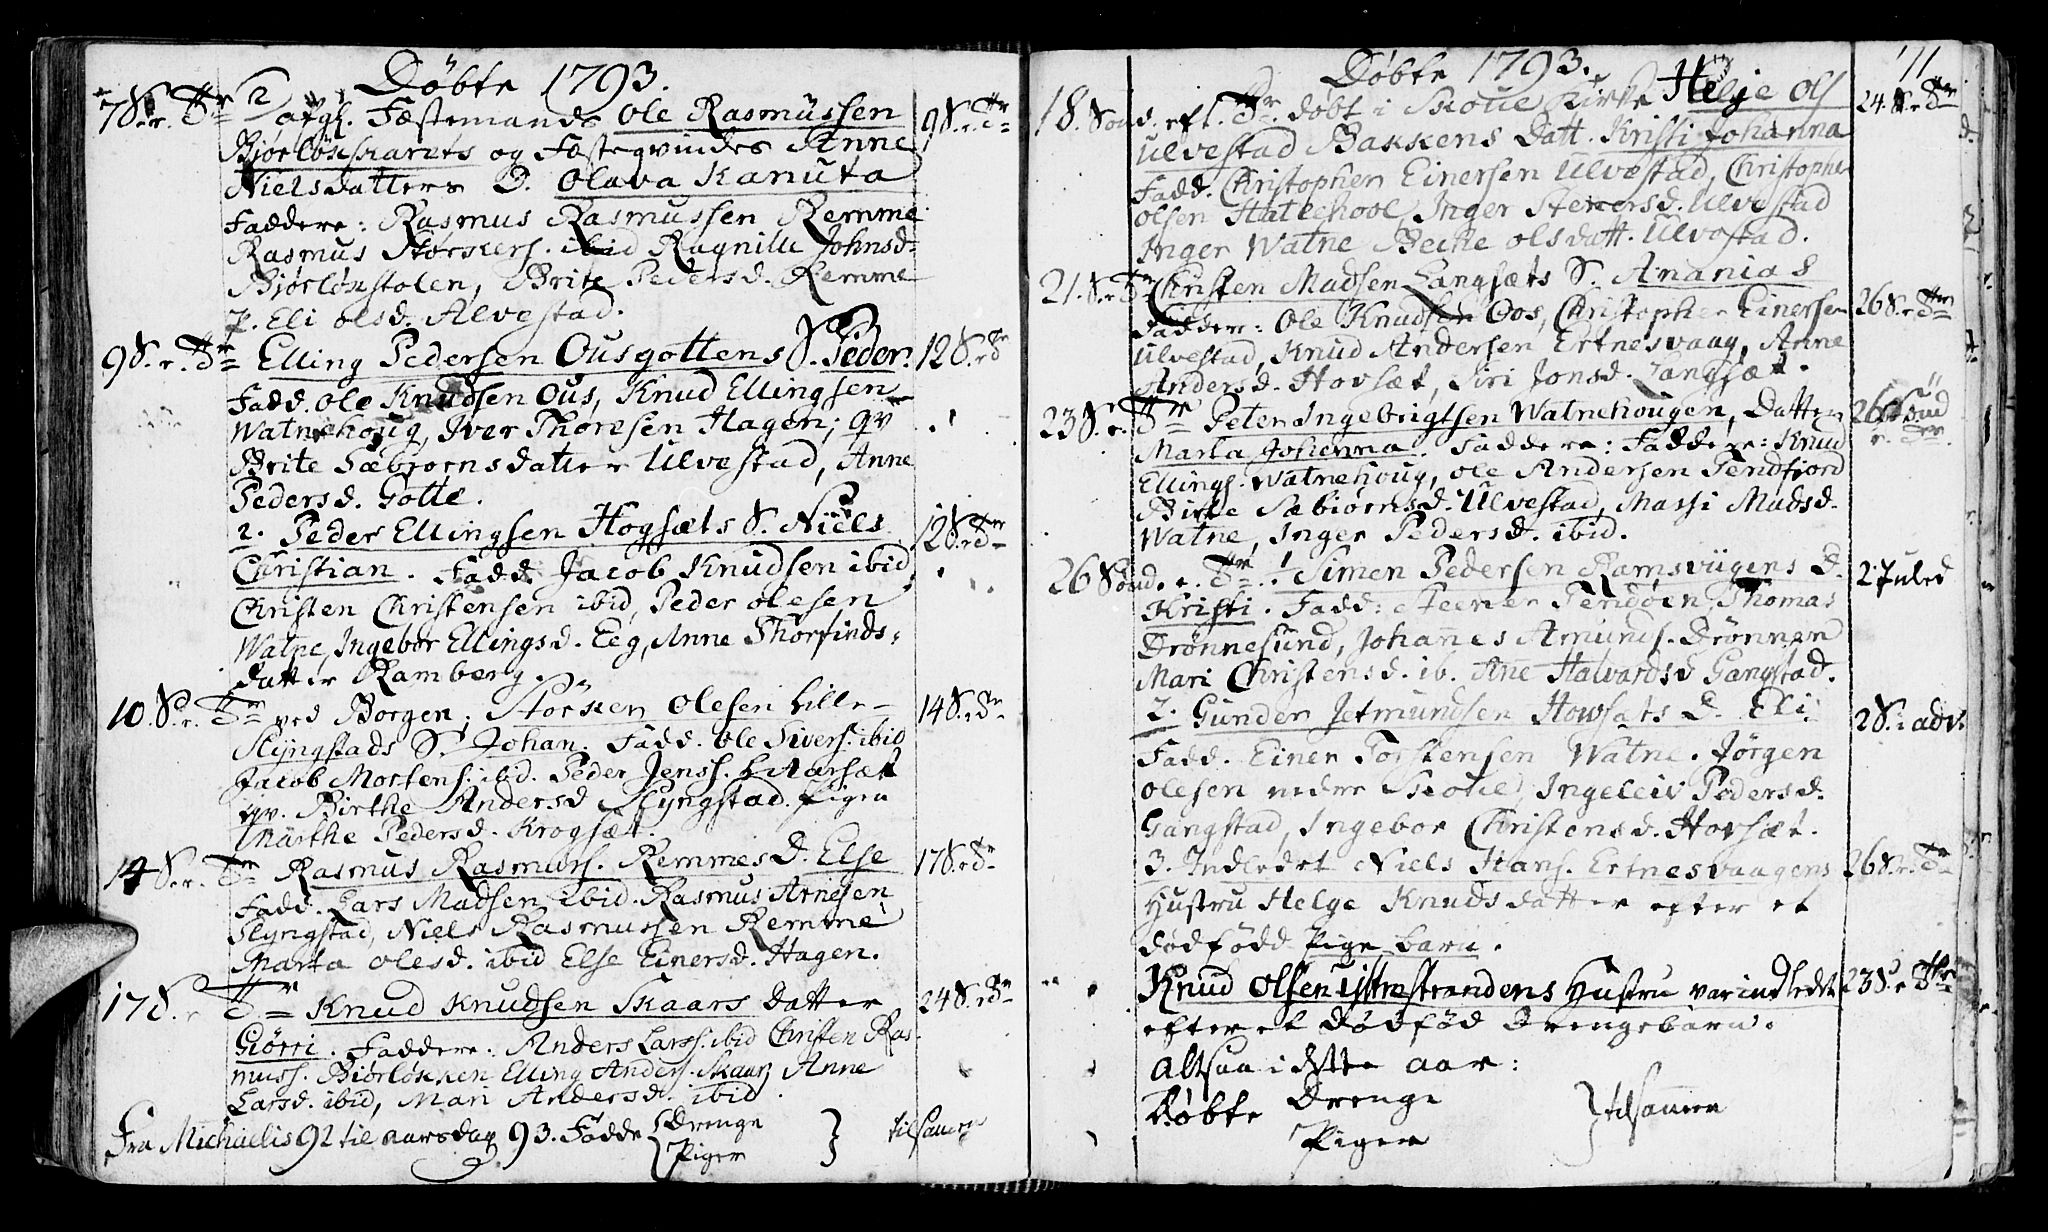 Döbte 1793.
7 S. e. Tr 2 / afg. Fæstemands Ole Rasmussen 9 S. e. Tr
Bjørløkskarets og Fæsteqvindes Anne
Nielsdatters D. Olava Kanuta
Faddere: Rasmus Rasmussen Remme
Rasmus Størkers. ibid Ragnille Johnsd-
Bjørløkstolen, Brite Pedersd. Remme
P. Eli olsd. Alvestad.
9 S. e. Tr Elling Pedersen Ousgottens S. Peder. 12 S. e Tr
Fadd. Ole Knudsen Ous, Knud Ellingsen
Watnehoug, Iver Thoresen Hagen; qv
Brite Sæbjørnsdatter Ulvestad, Anne
Pedersd. Gotte.
2. Peder Ellingsen Hogsæts S. Niels 12 S. e Tr
Christian. Fadd. Jacob Knudsen ibid,
Christen Christensen ibid, Peder olesen
Watne, Ingebor Ellingsd. Eeg, Anne Thorfinds-
datter Ramberg.
10. S. e. Tr ved Borgen; Størker Olesen Lille- 14 S. e Tr
Slyngstads S. Johan. Fadd. Ole Sivers. ibid
Jacob Mortens. ibid. Peder Jenss.
qv. Birthe Andersd Slyngstad. Pigen
Marthe Pedersd. Krogsæt.
14 S. e. Tr Rasmus Rasmuss. Remmes D. Else 17 S. e Tr
Fadd. Lars Madsen ibid. Rasmus Arnesen
Slyngstad, Niels Rasmussen Remme
Marta olesd. ibid Else Einersd. Hagen.
17 S. e Tr Knud Knudsen Skaars datter 24 S. e Tr
Giørri. Faddere: Anders Larss. ibid Christen Ras-
muss. Bjørløkken Elling Anders. Skaar Anne
Larsd. ibid, Mari Andersd. ibid
Fra Michaelis 92 til aarsdag 93. Fødde { Drenge
Piger } tilsamen
Döbte 1793. 71
18. Sønd. eft. Tr. døbt i Skoue Kirke Helje Ols 24. S. e Tr
Ulvestad Bakkens Datt. Kristi Johanna
Fadd. Christopher Einersen Ulvestad, Christopher
olsen Hatlehool, Inger Stenersd. Ulvestad
Inger Watne Berte olsdatt. Ulvestad.
21. S. e Tr Christen Madsen Langsæts S. Ananias
Fadder: Ole Knudsen Oos, Christopher Einersen 26 S. e Tr
Ulvestad, Knud Andersen Ertnesvaag, Anne
Andersd. Hovsæt, Siri Jonsd. Langsæt.
23 S. e. Tr Peter Ingebrigtsen Watnehougen, Datter 26 Sønd
Marta Johanna. Faddere: Faddere: Knud e. Tr.
Ellings. Watnehoug, ole Andersen Tendfjord
Birte Sæbiørnsd. Ulvestad, Massi Madsd.
Watne, Inger Pedersd. ibid.
26 Sønd. e. Tr. 1 Simen Pedersen Ramsviigens D. 2 Juled
Kristi. Fadd: Steener Tendøen, Thomas
Drønnesund, Johannes Amunds. Drønnen
Mari Christensd. ib. Ane Halvardsd Gangstad.
2. Gunder Jetmundsen Howsæts D. Eli 2 S. i adv.
Fadd. Einer Torstensen Watne. Jørgen
olesen nedre Skoue, Ingeleiv Pedersd.
Gangstad, Ingebor Christensd. Hovsæt.
3. Indledet Niels Hans. Ertnesvaagens 26 S. e. Tr
Hustru Helge Knudsdatter efter et
dødfødd Pige barn.
Knud Olsen ystrestrandens Hustru var indledet 23 S. e Tr
efter et dødfød Drengebarn.
Altsaa i dette aar:
Døbte Drenge
Piger } tilsamen